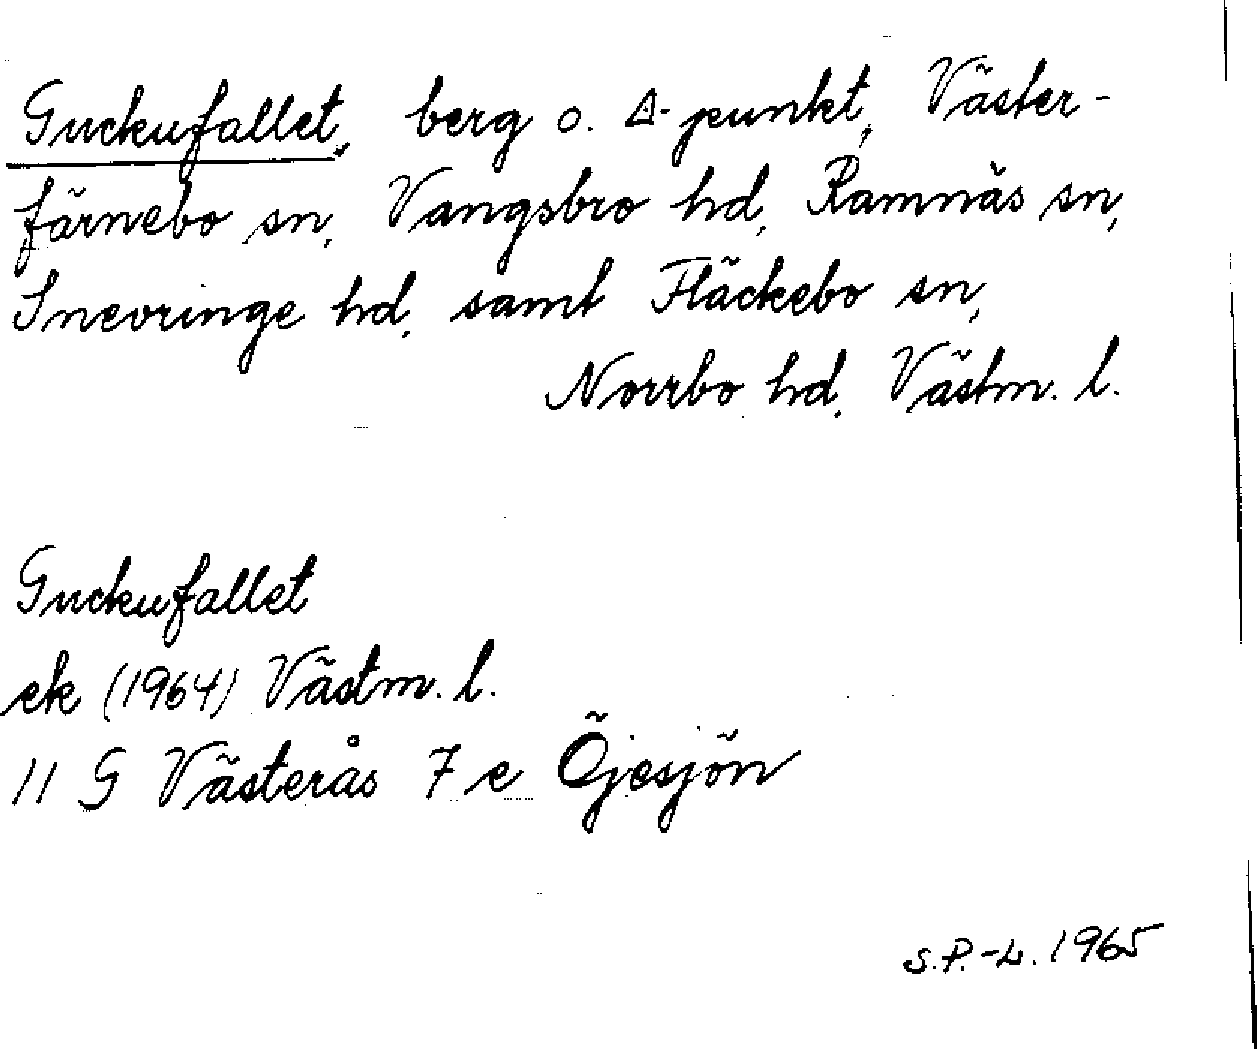 Guckufallet, berg o. △-punkt, Väster-
färnebo sn, Vangsbro hd, Ramnäs sn,
Snevringe hd, samt Fläckebo sn,
Norrbo hd, Västm. l.
Guckufallet
ek (1964) Västm. l.
11 G Västerås 7 e Öjesjön
S.P.-L. 1965